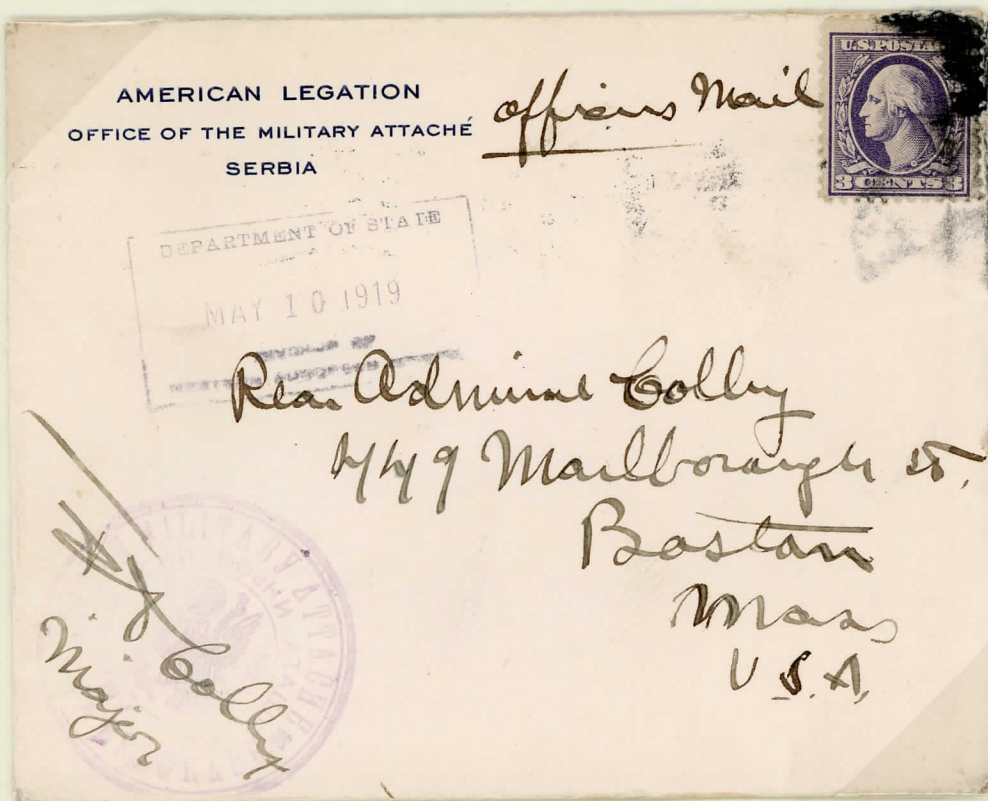 AMERICAN LEGATION
OFFICE OF THE MILITARY ATTACHÉ
SERBIA
Officers Mail
U.S. POSTAGE
3 CENTS 3
DEPARTMENT OF STATE
MAY 10 1919
Rear Admiral Colby
449 Marlborough St.
Boston
Mass
U.S.A.
MILITARY ATTACHE
Colby
Major